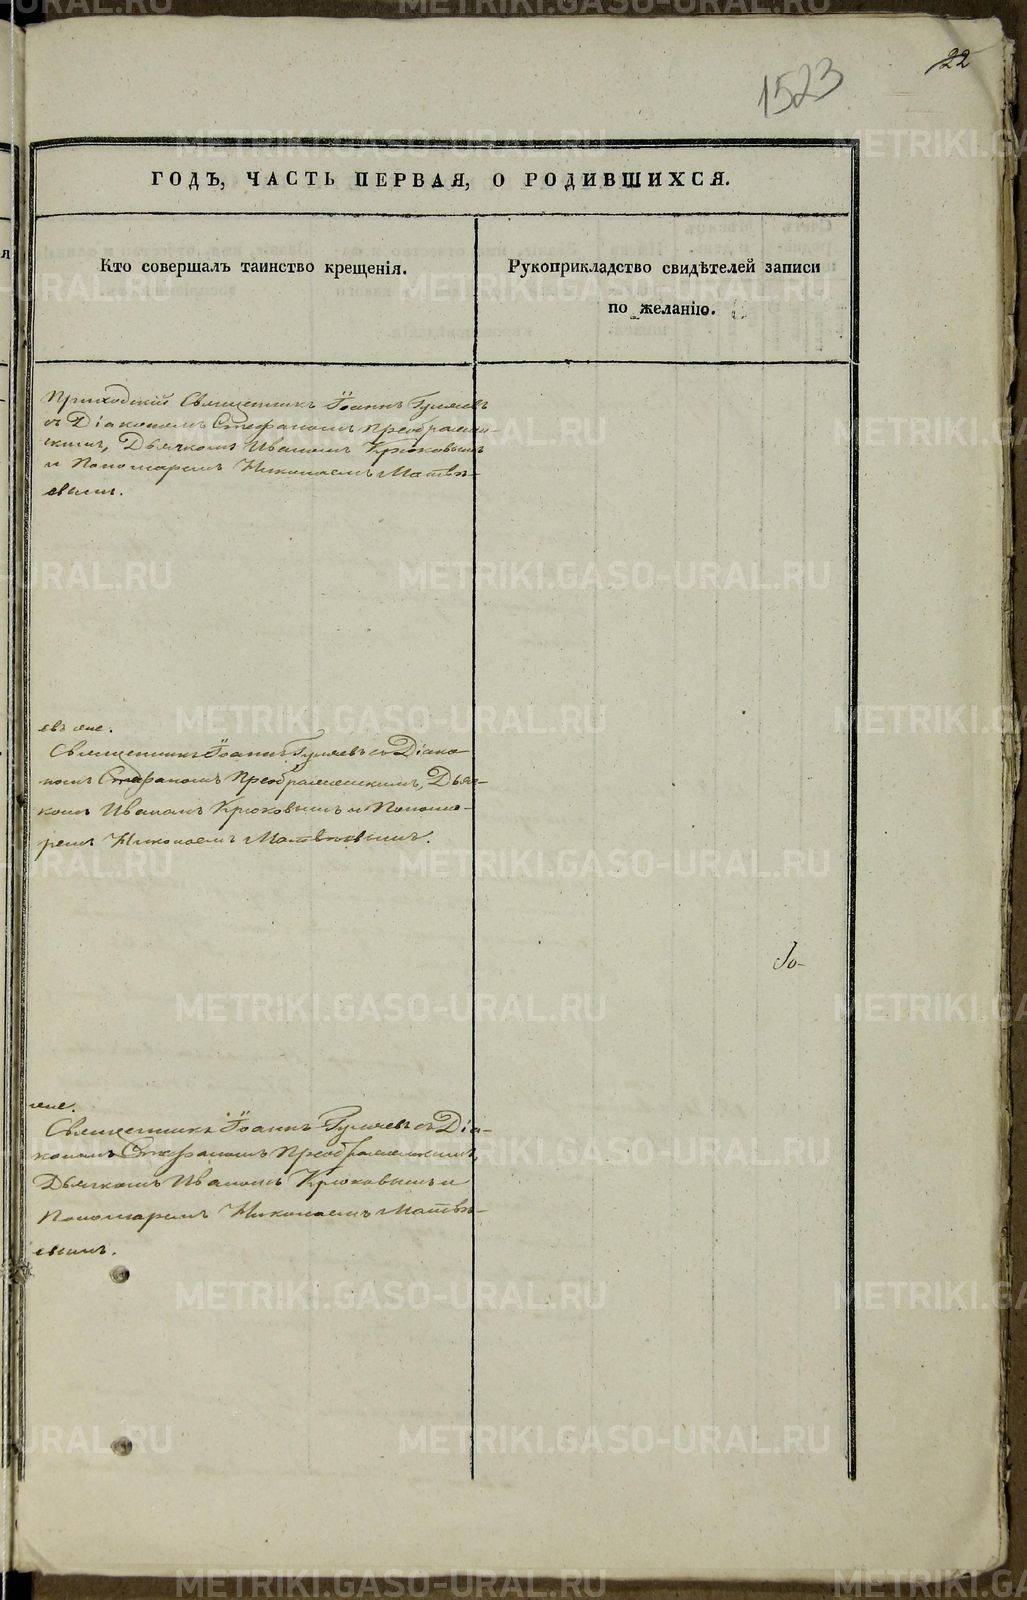 22
1523
ГОДЪ, ЧАСТЬ ПЕРВАЯ, О РОДИВШИХСЯ.
Кто совершалъ таинство крещенія.
Рукоприкладство свидѣтелей записи
по желанію.
Приходскій Священникъ Іоаннъ Гуляевъ
съ Діакономъ Стефаномъ Преображен-
скимъ, Дьячкомъ Иваномъ Крюковымъ
и Пономаремъ Николаемъ Матвѣ-
евымъ.
Священникъ Іоаннъ Гуляевъ съ Діако
номъ Стефаномъ Преображенскимъ, Дьяч-
комъ Иваномъ Крюковымъ и Понома-
ремъ Николаемъ Матвѣевымъ.
Священникъ Іоаннъ Гуляевъ съ Діа-
кономъ Стефаномъ Преображенскимъ,
Дьячкомъ Иваномъ Крюковымъ и
Пономаремъ Николаемъ Матвѣ-
евымъ.
METRIKI.GASO-URAL.RU